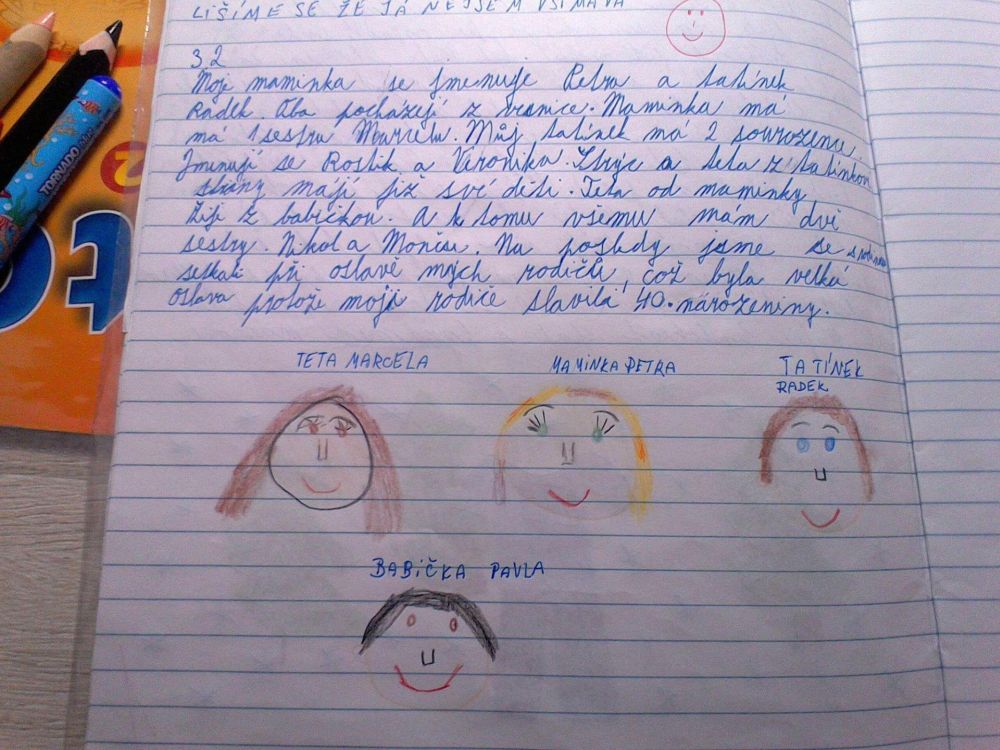 LIŠÍME SE ŽE JÁ NEJSEM VŠÍMAVÁ
32
Moje maminka se jmenuje Petra a tatínek
Radek. Oba pocházejí z vranice. Maminka má
má 1 sestru Marcelu. Můj tatínek má 2 sourozence.
Jmenují se Rostik a Veronika. Strýc a teta z tatínkovi
strany mají již své děti. Teta od maminky
žijí z babičkou. A k tomu všemu mám dvě
sestry. Nikol a Moniku. Na posledy jsme se s rodinou
setkali při oslavě mojich rodičů, což byla velká
oslava protože moji rodiče slavila 40. narozeniny.
TETA MARCELA MAMINKA PETRA TATÍNEK
RADEK
BABIČKA PAVLA
TORNADO